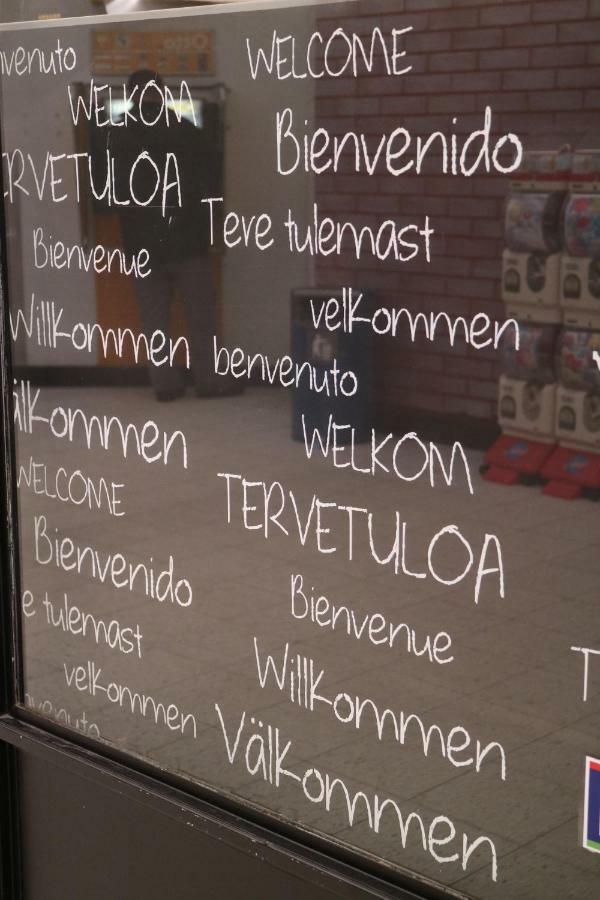 nvenuto
WELCOME
WELKOM
Bienvenido
ERVETULOA
Teve tulemast
Bienvenue
velkommen
Willkommen
benvenuto
älkommen
WELKOM
WELCOME
TERVETULOA
Bienvenido
Bienvenue
e tulemast
Willkommen
velkommen
T
nvenuto
Välkommen